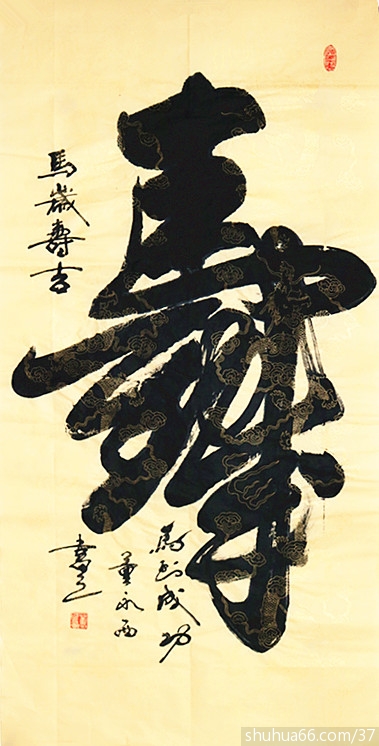 壽
馬歲壽吉
馬到成功
董永西
shuhua66.com/37